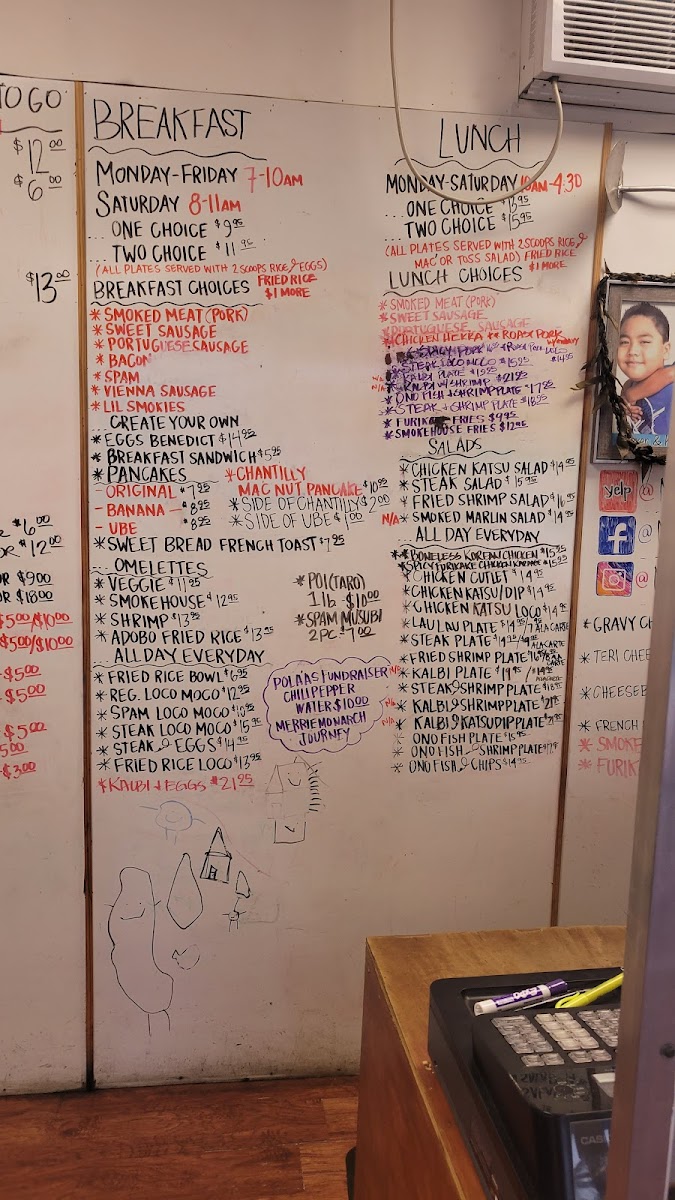 TO GO
$12.00
$6.00
$13.00
$6.00
OR $12.00
OR $9.00
OR $18.00
$5.00/$10.00
$5.00/$10.00
-$5.00
-$5.00
-$5.00
5.00
-$3.00
BREAKFAST
MONDAY-FRIDAY 7-10AM
SATURDAY 8-11AM
...ONE CHOICE $9.95
...TWO CHOICE $11.95
(ALL PLATES SERVED WITH 2 SCOOPS RICE & EGGS)
BREAKFAST CHOICES FRIED RICE $1 MORE
* SMOKED MEAT (PORK)
* SWEET SAUSAGE
* PORTUGUESE SAUSAGE
* BACON
* SPAM
* VIENNA SAUSAGE
* LIL SMOKIES
...CREATE YOUR OWN
* EGGS BENEDICT $14.95
* BREAKFAST SANDWICH $5.95
* PANCAKES
- ORIGINAL $7.95
- BANANA - $8.95
- UBE $8.95
* CHANTILLY
MAC NUT PANCAKE $10.95
* SIDE OF CHANTILLY $2.00
* SIDE OF UBE $1.00
* SWEET BREAD FRENCH TOAST $7.95
...OMELETTES
* VEGGIE $11.95
* SMOKEHOUSE $12.95
* SHRIMP $13.95
* ADOBO FRIED RICE $13.95
* POI (TARO)
1 lb - $10.00
* SPAM MUSUBI
2 PC - $7.00
...ALL DAY EVERYDAY
* FRIED RICE BOWL $6.95
* REG. LOCO MOCO $12.95
* SPAM LOCO MOCO $10.95
* STEAK LOCO MOCO $15.95
* STEAK & EGGS $14.95
* FRIED RICE LOCO $13.95
* KALBI + EGGS $21.25
POLAAS FUNDRAISER
CHILI PEPPER
WATER $10.00
MERRIE MONARCH
JOURNEY
LUNCH
MONDAY-SATURDAY 10AM-4:30
...ONE CHOICE $13.95
...TWO CHOICE $15.95
(ALL PLATES SERVED WITH 2 SCOOPS RICE &
MAC OR TOSS SALAD) FRIED RICE $1 MORE
LUNCH CHOICES
* SMOKED MEAT (PORK)
* SWEET SAUSAGE
* PORTUGUESE SAUSAGE
* CHICKEN HEKKA ** ROAST PORK W/GRAVY
SPICY PORK
* STEAK LOCO MOCO $15.95
N/A * KALBI PLATE $19.95
N/A * KALBI W/ SHRIMP $21.95
* ONO FISH & SHRIMP PLATE $17.95
* STEAK & SHRIMP PLATE $18.95
* FURIKAKE FRIES $9.95
* SMOKEHOUSE FRIES $12.95
SALADS
* CHICKEN KATSU SALAD $14.95
* STEAK SALAD $15.95
* FRIED SHRIMP SALAD $16.95
N/A * SMOKED MARLIN SALAD $14.95
...ALL DAY EVERYDAY
** BONELESS KOREAN CHICKEN $15.95
* SPICY FURIKAKE CHICKEN $15.95
* CHICKEN CUTLET $14.95
* CHICKEN KATSU/DIP $14.95
* CHICKEN KATSU LOCO $14.95
* LAU LAU PLATE $14.95 ALA CARTE
* STEAK PLATE $14.95 ALA CARTE
* FRIED SHRIMP PLATE ALA CARTE
N/A * KALBI PLATE $19.95 ALA CARTE
* STEAK & SHRIMP PLATE $18.95
N/A * KALBI & SHRIMP PLATE
N/A * KALBI & KATSU DIP PLATE
* ONO FISH PLATE $15.95
* ONO FISH & SHRIMP PLATE $17.95
* ONO FISH & CHIPS $14.95
yelp @
f @
@
* GRAVY
* TERI CHEE
* CHEESEB
* FRENCH
* SMOKE
* FURIK